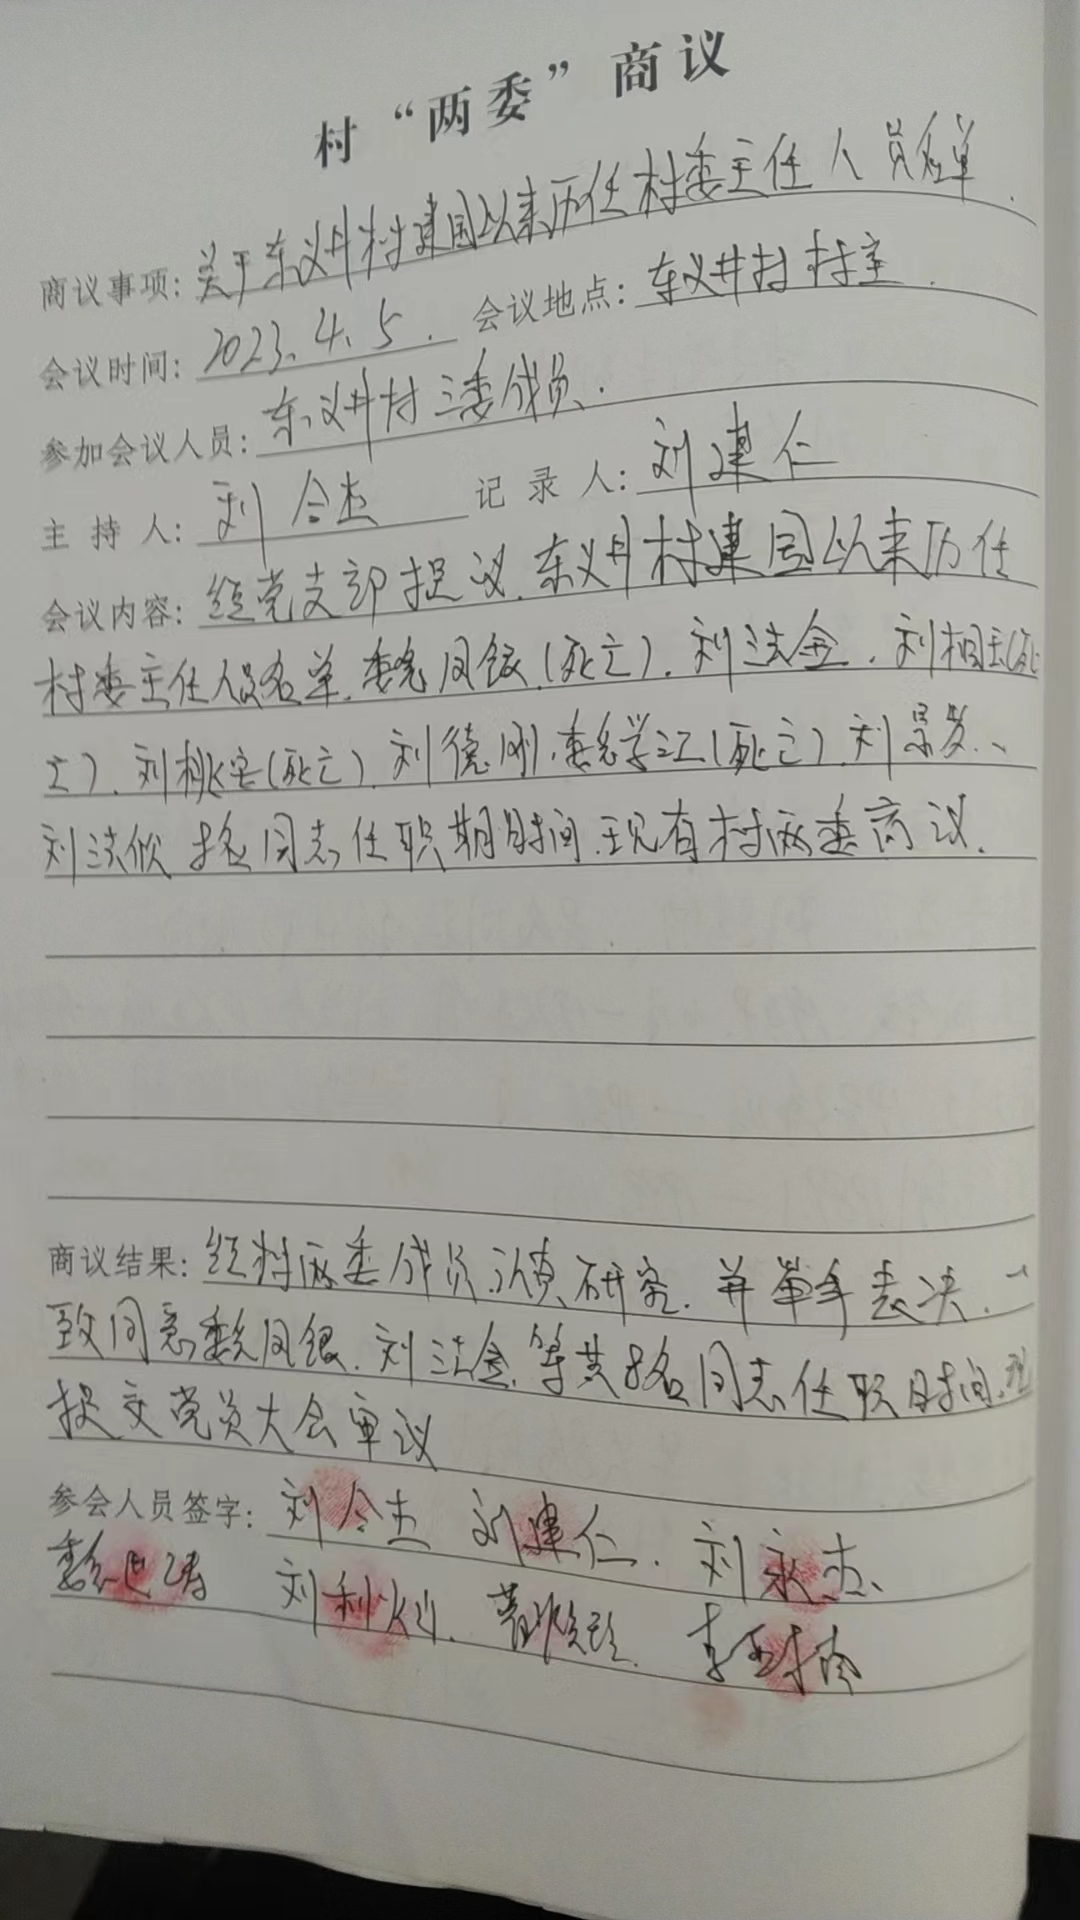 村“两委”商议
商议事项：关于东义井村建国以来历任村委主任人员名单.
会议时间：2023.4.5. 会议地点：东义井村村室.
参加会议人员：东义井村三委成员.
主持人：刘合杰 记录人：刘建仁
会议内容：经党支部提议.东义井村建国以来历任
村委主任人员名单.魏凤银(死亡).刘法金.刘相玉(死
亡).刘桃安(死亡).刘德刚.魏学江(死亡).刘景发、
刘法欣 8名同志任职期时间.现有村两委商议.
商议结果：经村两委成员认真研究.并举手表决.一
致同意魏凤银.刘法金.等共8名同志任职时间.现
提交党员大会审议
参会人员签字：刘合杰 刘建仁. 刘永杰、
魏 涛 刘利 . 李